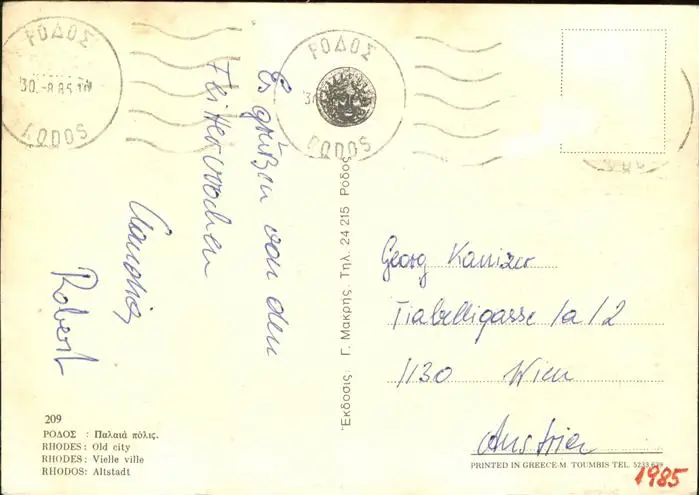 ΡΟΔΟΣ
30.-8.85
RODOS
ΡΟΔΟΣ
RODOS
Es grüßen von den
Flitterwochen
Claudia
Robert
Ἔκδοσις Γ. Μακρης Τηλ. 24 215 Ρόδος
Georg
Diabelligasse 1a/2
1130 Wien
Austria
209
ΡΟΔΟΣ : Παλαιά πόλις.
RHODES: Old city
RHODES: Vielle ville
RHODOS: Altstadt
PRINTED IN GREECE-M TOUMBIS TEL.
1985